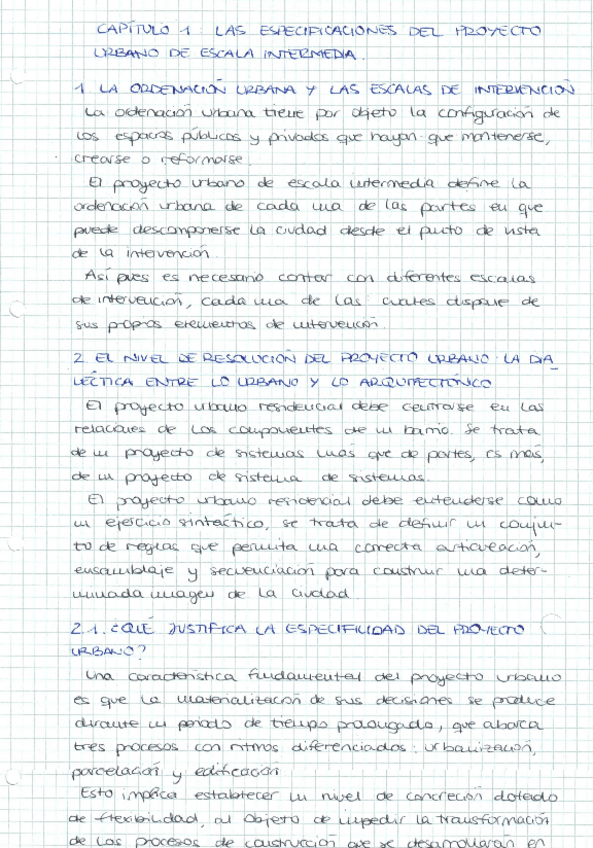 CAPÍTULO 1: LAS ESPECIFICACIONES DEL PROYECTO
URBANO DE ESCALA INTERMEDIA.
1. LA ORDENACIÓN URBANA Y LAS ESCALAS DE INTERVENCIÓN
La ordenación urbana tiene por objeto la configuración de
los espacios públicos y privados que hayan que mantenerse,
crearse o reformarse.
El proyecto urbano de escala intermedia define la
ordenación urbana de cada una de las partes en que
puede descomponerse la ciudad desde el punto de vista
de la intervención.
Así pues es necesario contar con diferentes escalas
de intervención, cada una de las cuales dispone de
sus propios elementos de intervención.
2. EL NIVEL DE RESOLUCIÓN DEL PROYECTO URBANO: LA DIA_
LÉCTICA ENTRE LO URBANO Y LO ARQUITECTÓNICO
El proyecto urbano residencial debe centrarse en las
relaciones de los componentes de un barrio. Se trata
de un proyecto de sistemas más que de partes, es más,
de un proyecto de sistema de sistemas.
El proyecto urbano residencial debe entenderse como
un ejercicio sintáctico, se trata de definir un conjun-
to de reglas que permita una correcta articulación,
ensamblaje y secuenciación para construir una deter-
minada imagen de la ciudad.
2.1. ¿QUÉ JUSTIFICA LA ESPECIFILIDAD DEL PROYECTO
URBANO?
Una característica fundamental del proyecto urbano
es que la materialización de sus decisiones se produce
durante un periodo de tiempo prolongado, que abarca
tres procesos con ritmos diferenciados: urbanización,
parcelación y edificación.
Esto implica establecer un nivel de concreción dotado
de flexibilidad, al objeto de impedir la transformación
de los procesos de construcción que se desarrollarán en